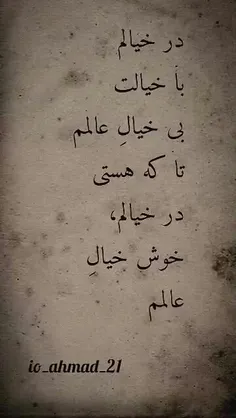 در خیالم
با خیالت
بی خیالِ عالمم
تا که هستی
در خیالم،
خوش خیالِ
عالمم
io_ahmad_21